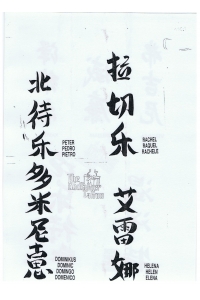 北待乐
PETER
PEDRO
PIETRO
多米尼
DOMINIKUS
DOMINIC
DOMINGO
DOMENICO
拉切乐
RACHEL
RAQUEL
RACHELE
艾雷娜
HELENA
HELEN
ELENA